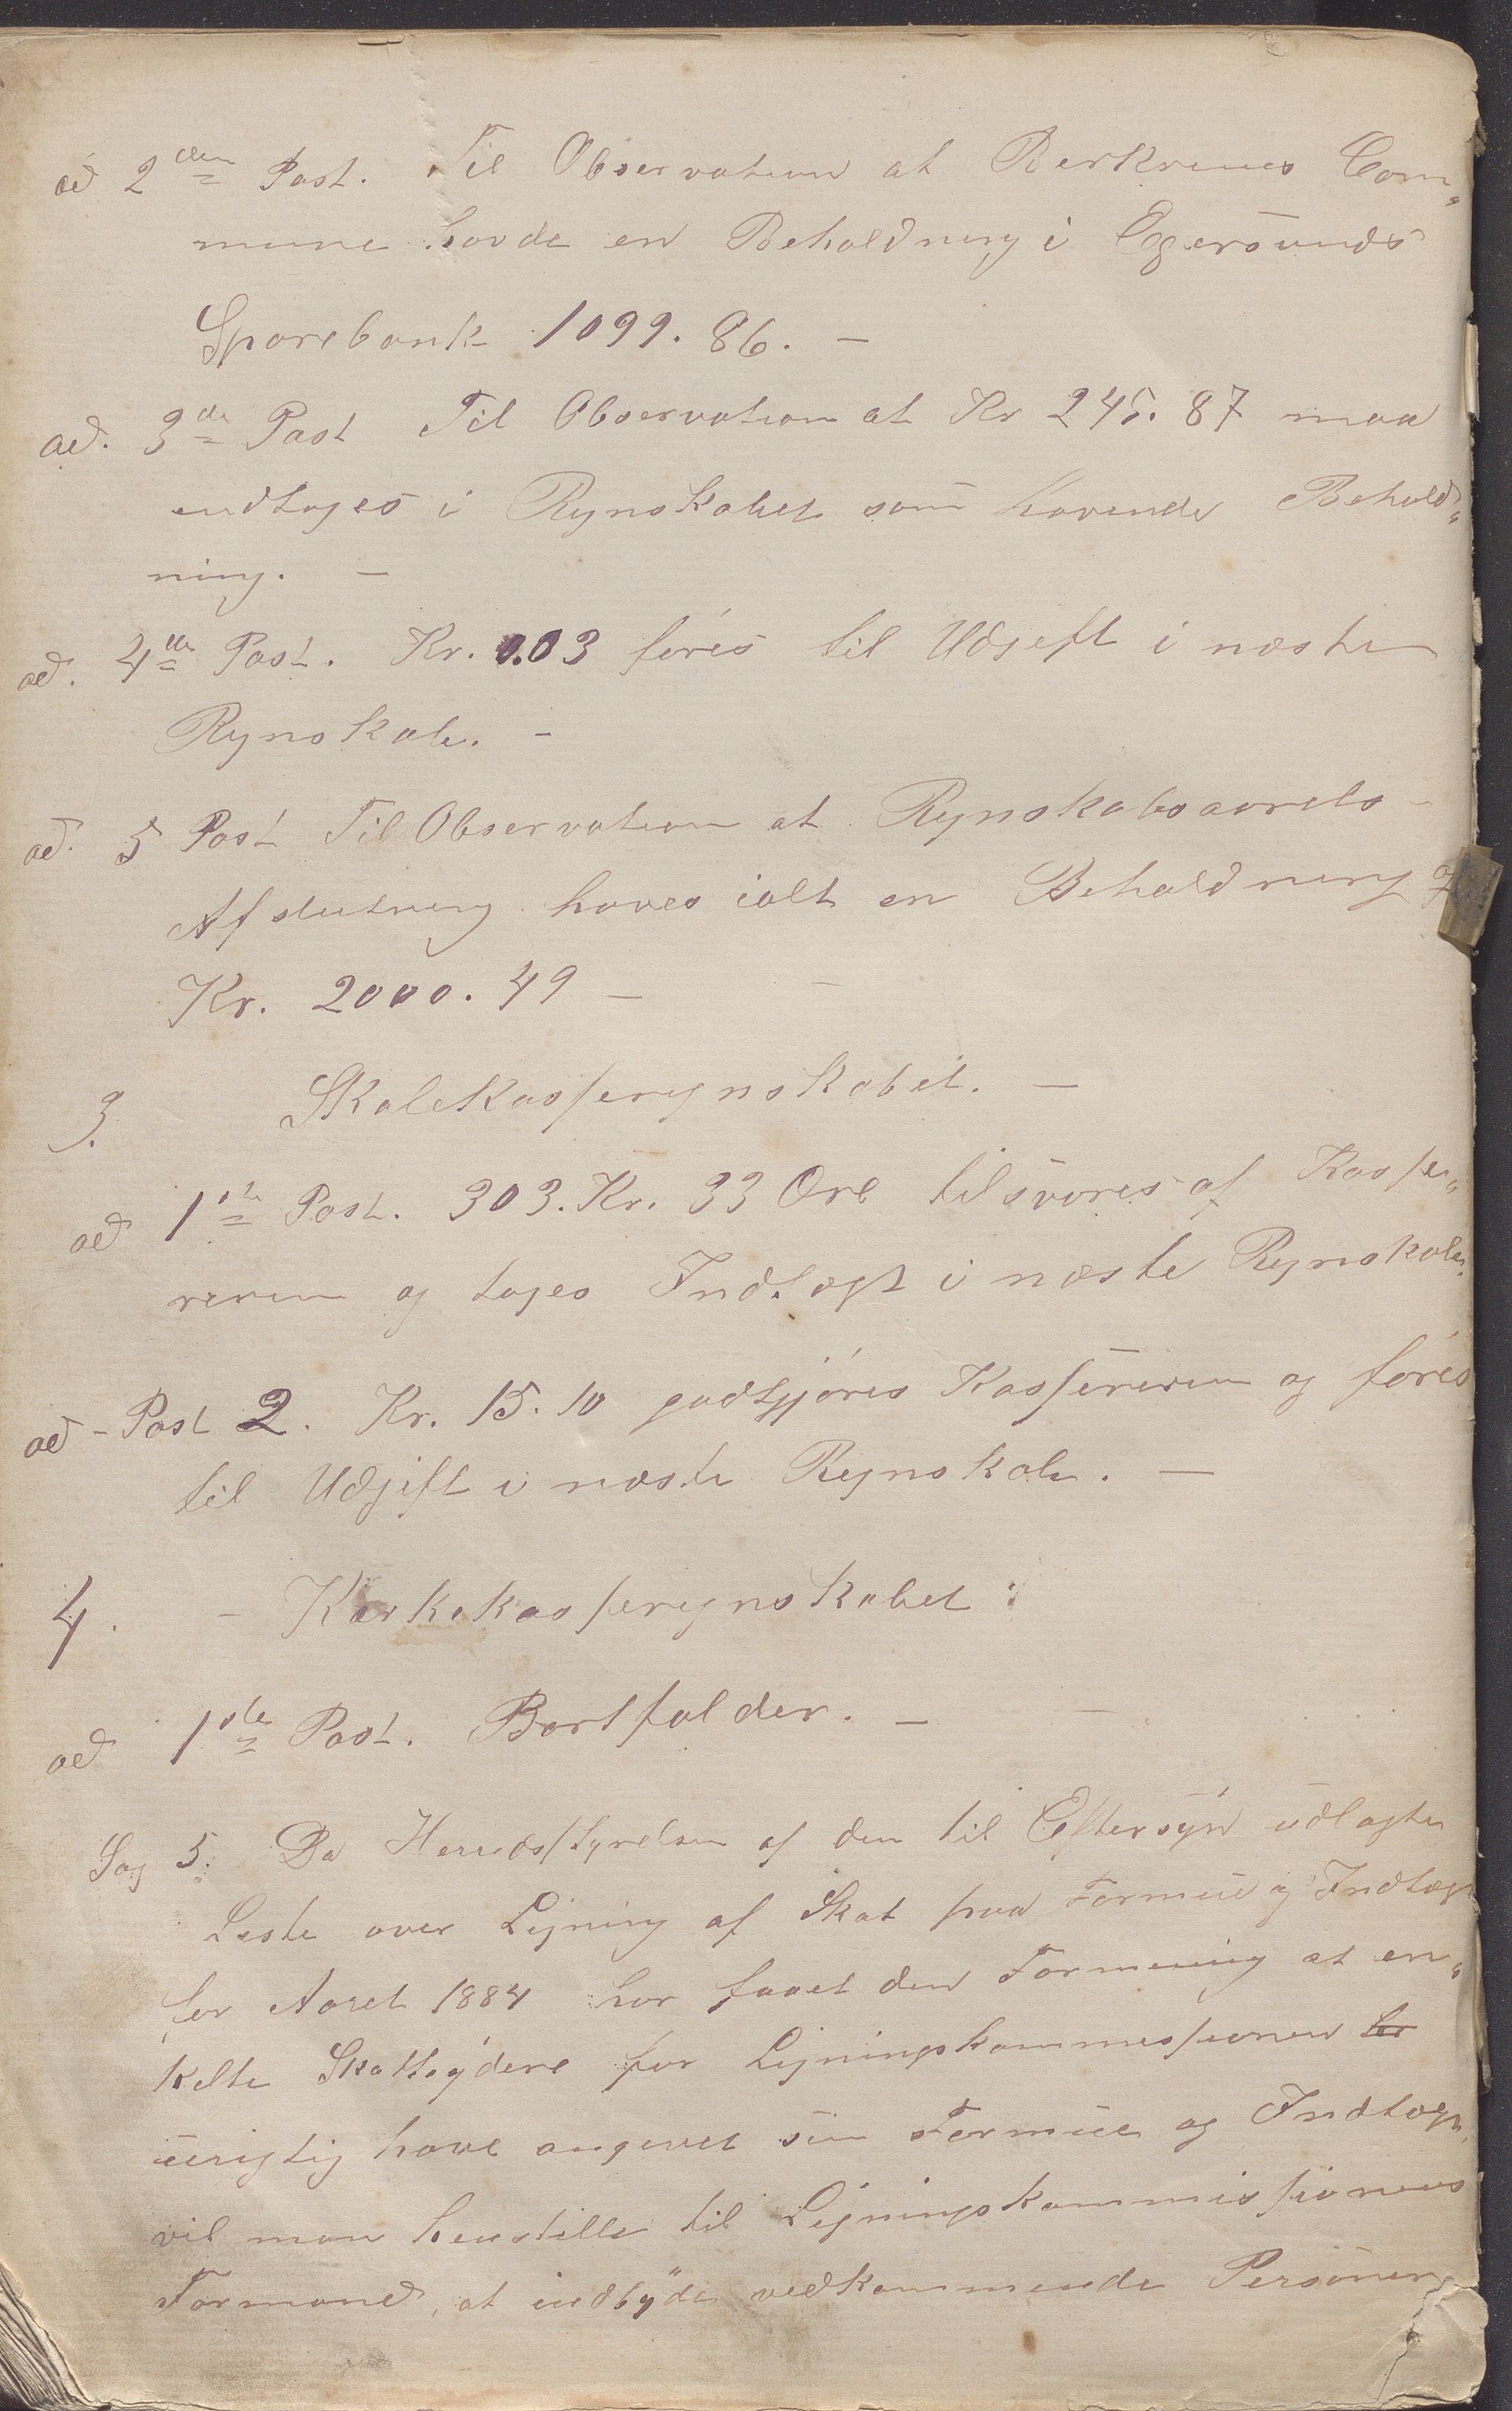 ad 2den Post. Til Observation at Berkrems Com„
mune havde en Beholdning i Egersunds
Sparebank 1099.86. —
ad. 3de Post Til Observation at Kr 245.87 maa
indtages i Regnskabet som havende Behold„
ning. —
ad. 4de Post. Kr. 0.03 føres til Udgift i næste
Regnskab. -
ad. 5 Post Til Observation at Regnskabsaarets
Afslutning haves ialt en Beholdning af
Kr. 2000.49 —
3. Skolekasseregnskabet. —
ad 1ste Post. 303.Kr. 33 Øre tilsvares af Kasse„
reren og tages Indtægt i næste Regnskab.
ad - Post 2. Kr. 15.10 godtgjøres Kassereren og føres
til Udgift i næste Regnskab. —
4. - Kirkekasseregnskabet:
ad 1ste Post. Bortfalder. —
Sag 5. Da Herredsstyrelsen af den til Eftersyn udlagte
Liste over Ligning af Skat paa Formue og Indtægt
for Aaret 1884 har faaet den Formening at en„
kelte Skatteydere for Ligningskommissionen har
urigtig have angivet sin Formue og Indtægt,
vil man henstille til Ligningskommissionens
Formand, at indbyde vedkommende Personer